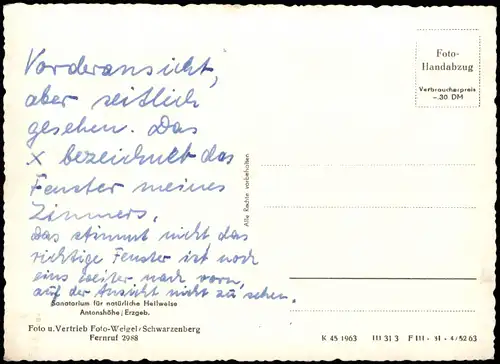 Vorderansicht,
aber seitlich
gesehen. Das
x bezeichnet das
Fenster meines
Zimmers.
Das stimmt nicht das
richtige Fenster ist noch
eins weiter nach vorn,
auf der Ansicht nicht zu sehen.
Sanatorium für natürliche Heilweise
Antonshöhe / Erzgeb.
Foto u. Vertrieb Foto-Weigel / Schwarzenberg
Fernruf 2988
Alle Rechte vorbehalten
Foto-
Handabzug
Verbraucherpreis
-.30 DM
K 45 1963 III 31 3 F III - 31 - 4/52 63